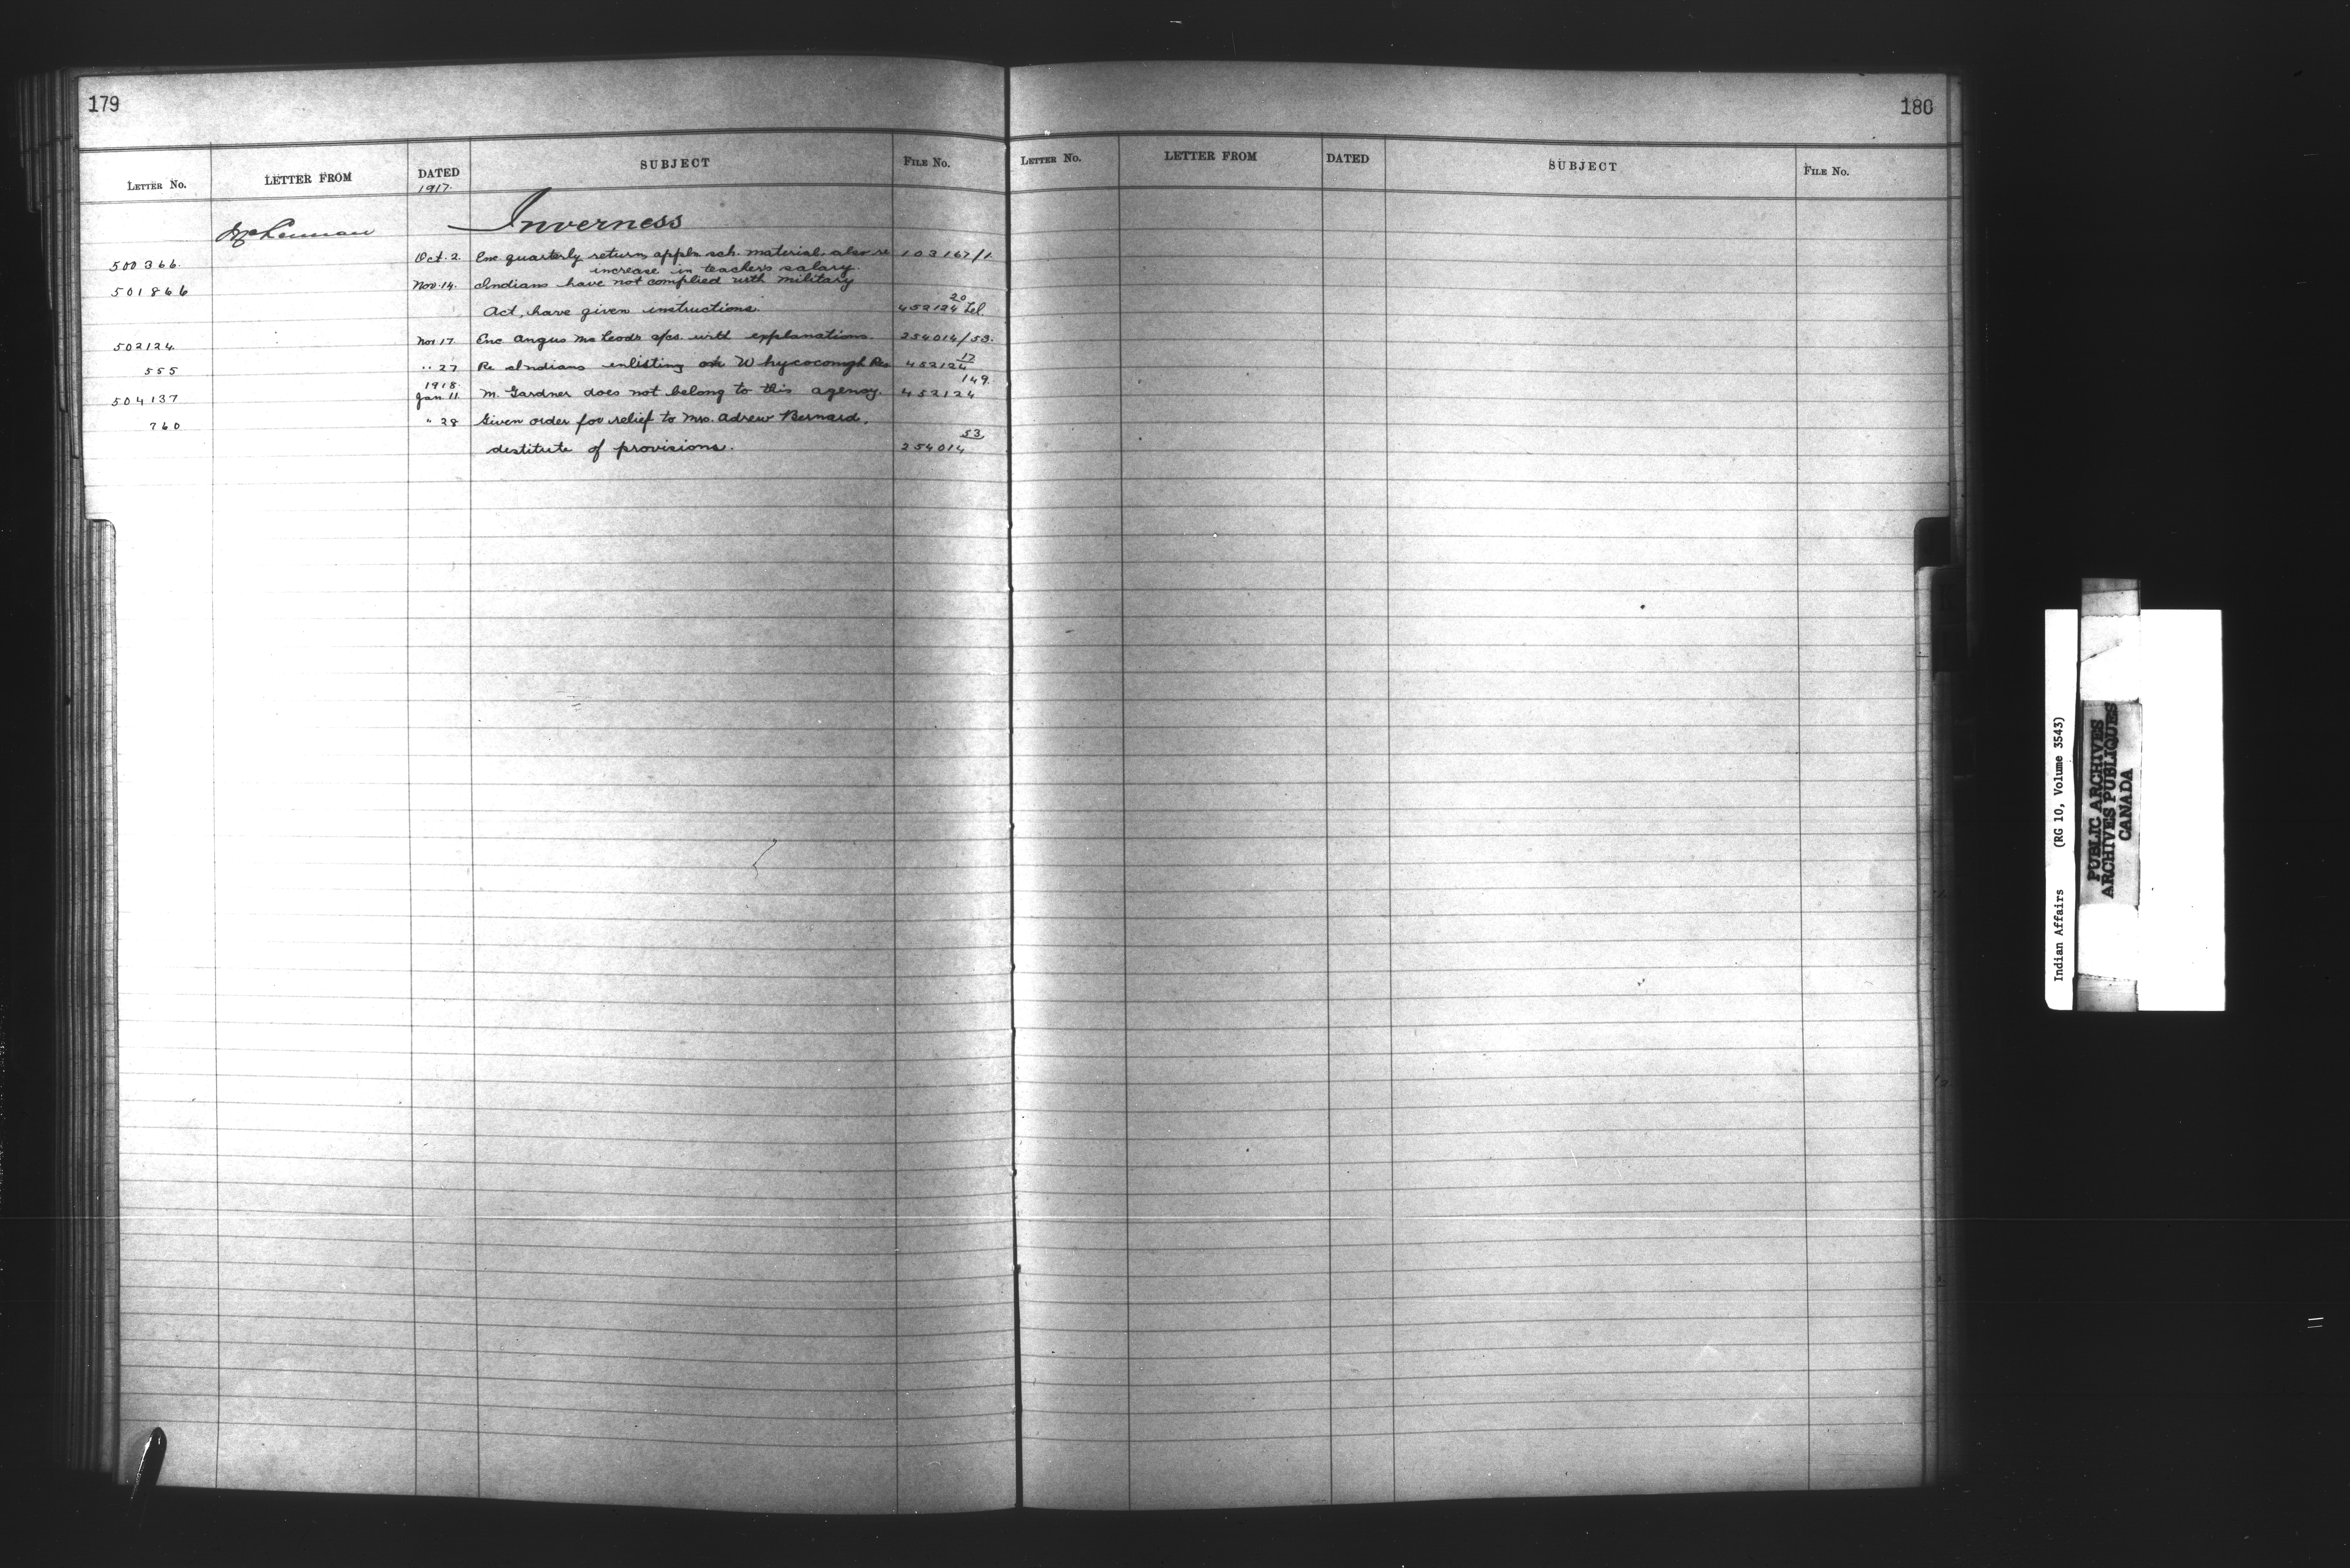 179
LETTER No. LETTER FROM DATED SUBJECT FILE No.
1917.
McLennan Inverness
500366. Oct. 2. Enc quarterly return, appln sch. material, also re 103167/1.
increase in teachers salary.
501866 Nov. 14. Indians have not complied with military
Act, have given instructions. 452124 20 Tel
502124. Nov 17 Enc Angus McLeods a/cs. with explanations. 254014/53.
555 " 27 Re Indians enlisting on Whycocomgh Res 452124 17
1918. 149.
504137 Jan. 11. M. Gardner does not belong to this agency. 452124
760 " 28 Given order for relief to Mrs. Adrew Bernard,
destitute of provisions. 254014 53
180
LETTER No. LETTER FROM DATED SUBJECT FILE No.
Indian Affairs (RG 10, Volume 3543)
PUBLIC ARCHIVES
ARCHIVES PUBLIQUES
CANADA